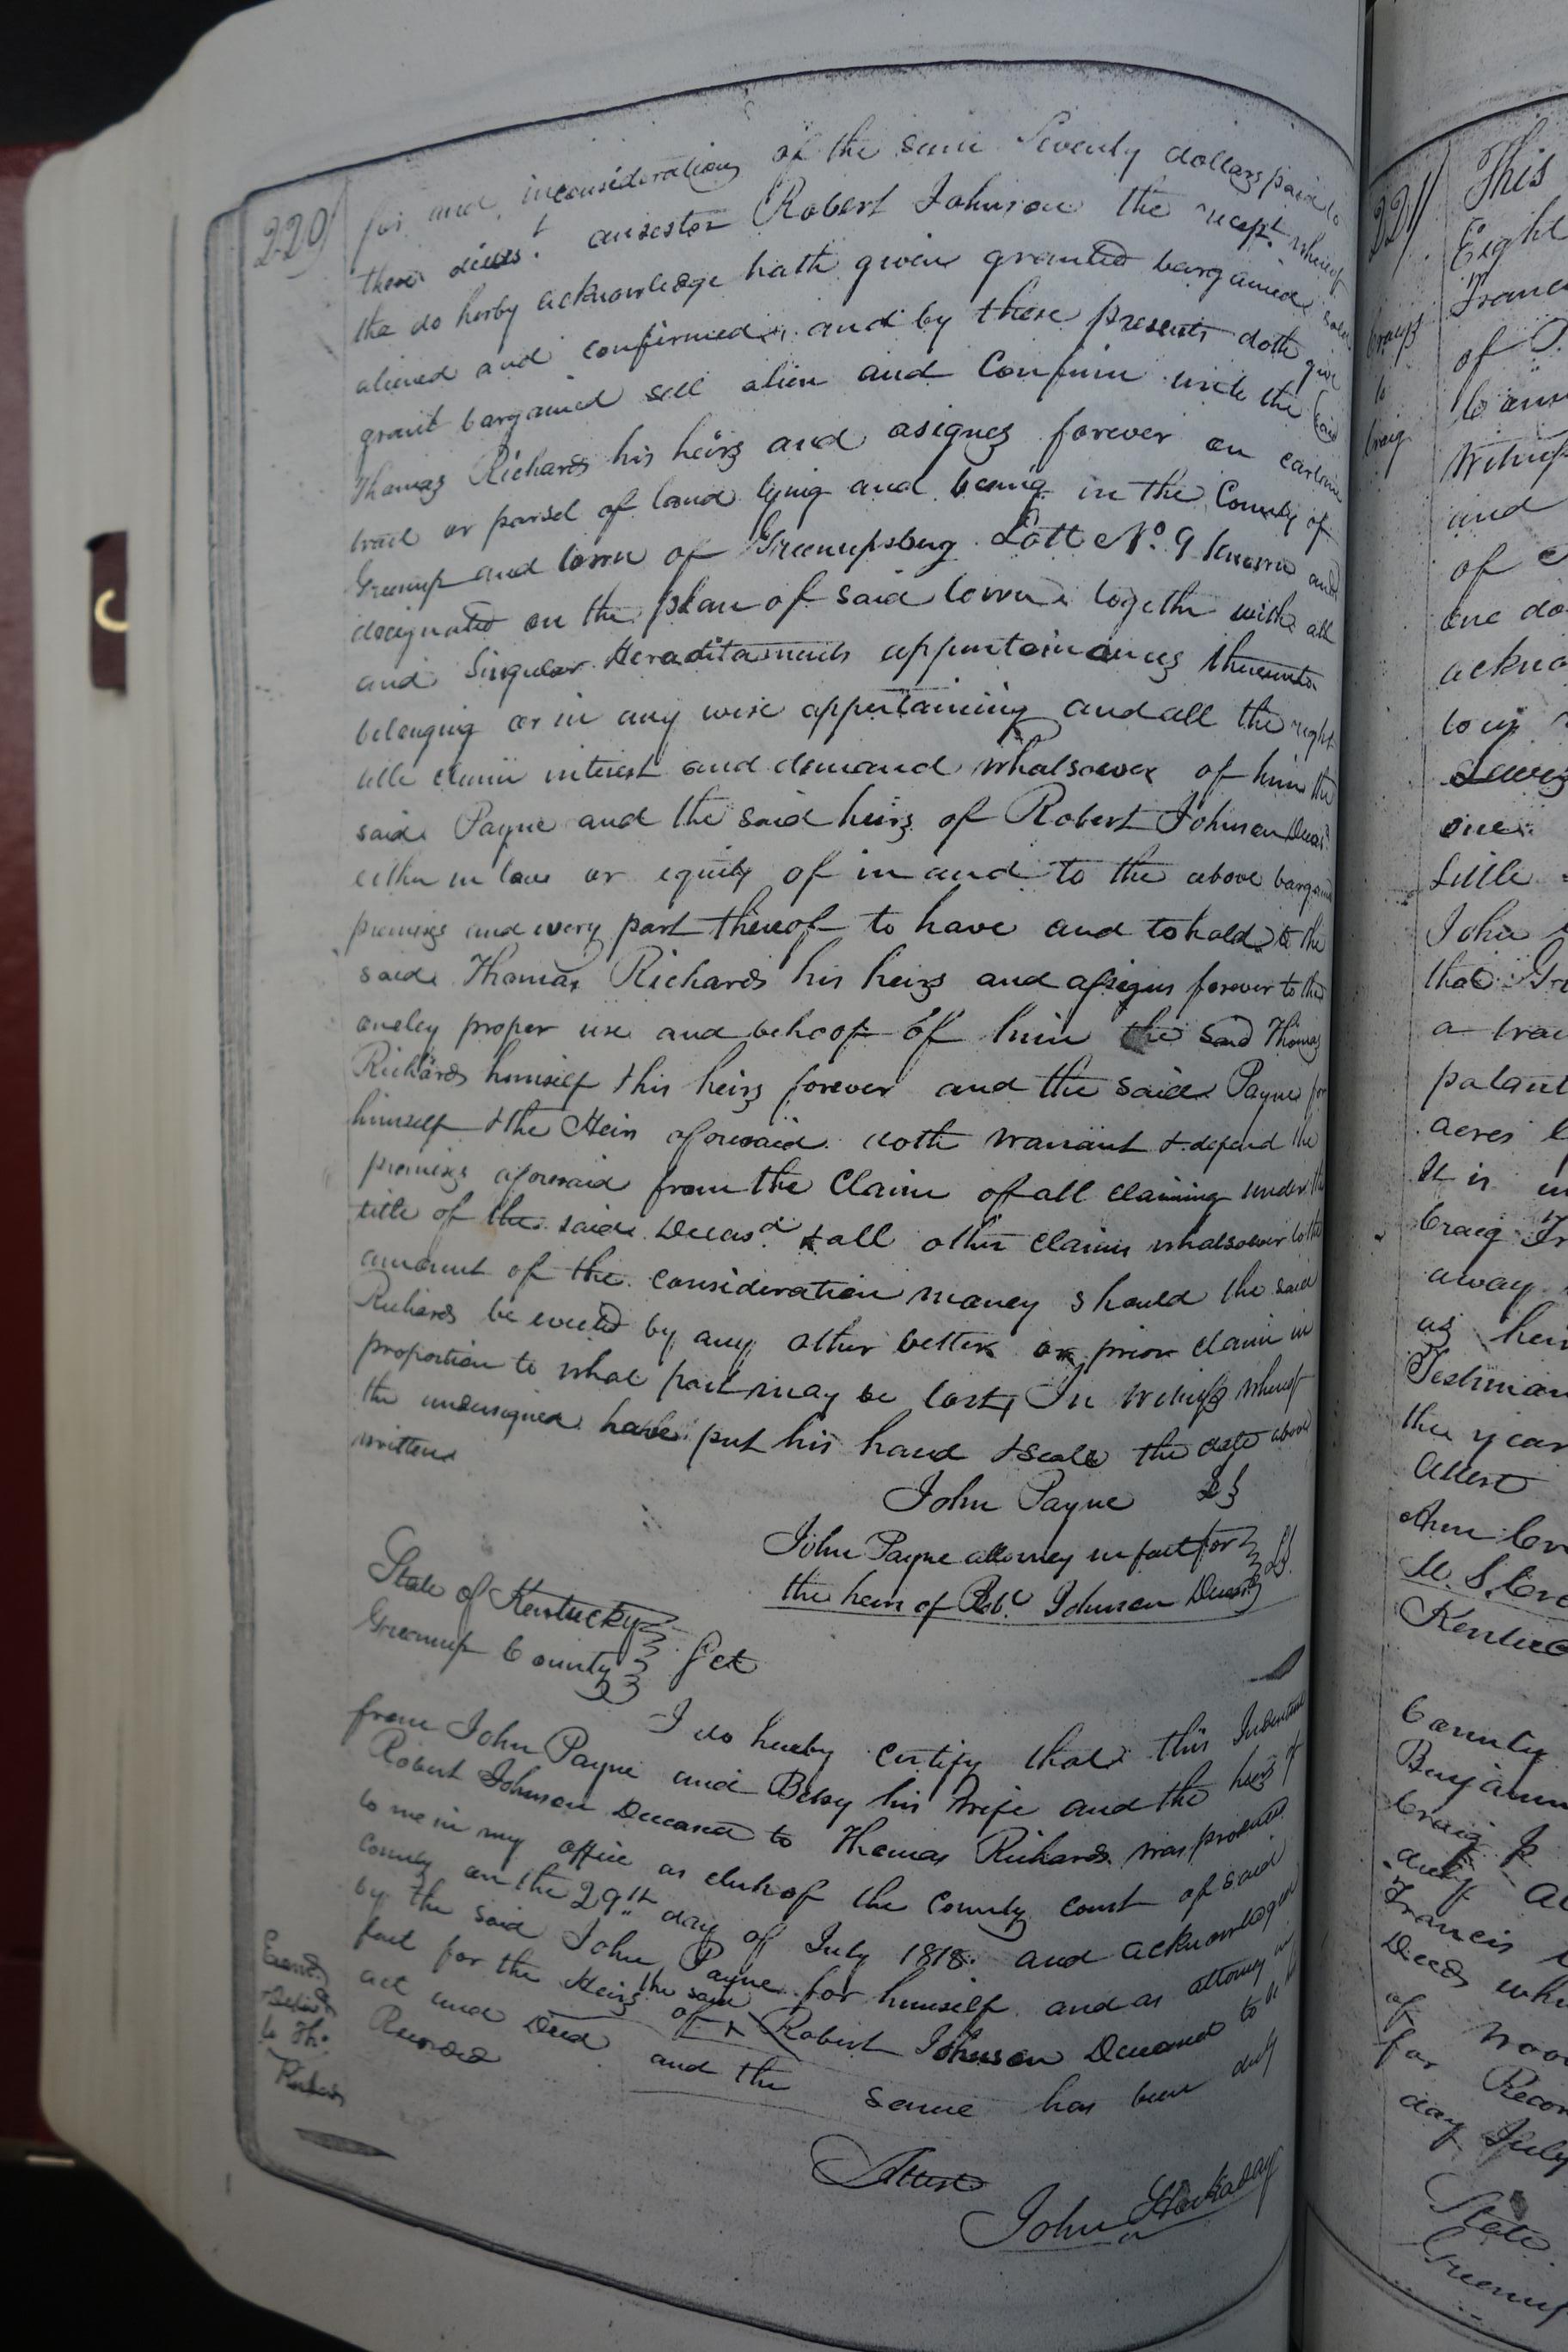 220
for and inconsideration of the sum Seventy dollars paid to
their ansestor Robert Johnson the recept whereof
the do herby acknowledge hath given granted bargained sold
aliened and confirmed, and by these presents doth give
grant bargained sell alien and Confirm unto the said
Thomas Richards his heirs and asignes forever an certain
tract or parsel of land lying and being in the County of
Greenup and town of Greenupsburg Lott No. 9 known and
designated on the plan of said town together with all
and Singular Heraditaments appurtainances thereunto
belonging or in any wise appertaining and all the right
title claim interest and demand whatsoever of him the
said Payne and the said heirs of Robert Johnson Decasd
either in law or equity of in and to the above bargaind
premises and every part thereof to have and to hold to the
said Thomas Richards his heirs and assigns forever to the
oneley proper use and behoof off him the Said Thomas
Richards himself & his heirs forever and the said Payne for
himself & the Heirs aforesaid doth warrant & defend the
premises aforesaid from the Claim of all claiming under the
title of the said Decasd & all other claims whatsoever to the
amount of the consideration money should the said
Richards be evicted by any other better or prior claim in
proportion to what part may be lost, In Witness whereof
the undersigned have put his hand & seale the date above
written
John Payne LS
John Payne attorney in fact for LS
the heirs of Robt Johnson Decasd
State of Kentucky
Greenup County Sct
I do hereby certify that this Indenture
from John Payne and Betsy his Wife and the heirs of
Robert Johnson Deceased to Thomas Richards was produced
to me in my office as clerk of the County court of said
county on the 29th day of July 1818 and acknowledged
by the said John Payne for himself and as attorney in
fact for the Heirs of the said Robert Johnson Deceased to be
act and Deed and the same has been duly
Recorded
Attest
John Hockaday
Examd
& Delivd
to Th:
Richards
221
This
Eight
Franc
of
Witness
and
of
one do
ackno
Craig
to
Craig
one
Little
John
that Gr
a trac
patent
acres
It is
Craig
away
as
Testimon
the year
Attest
Kentuc
County
Benjamin
Craig Jr
Francis
Deeds whi
of
for Recor
day July
State
Greenup